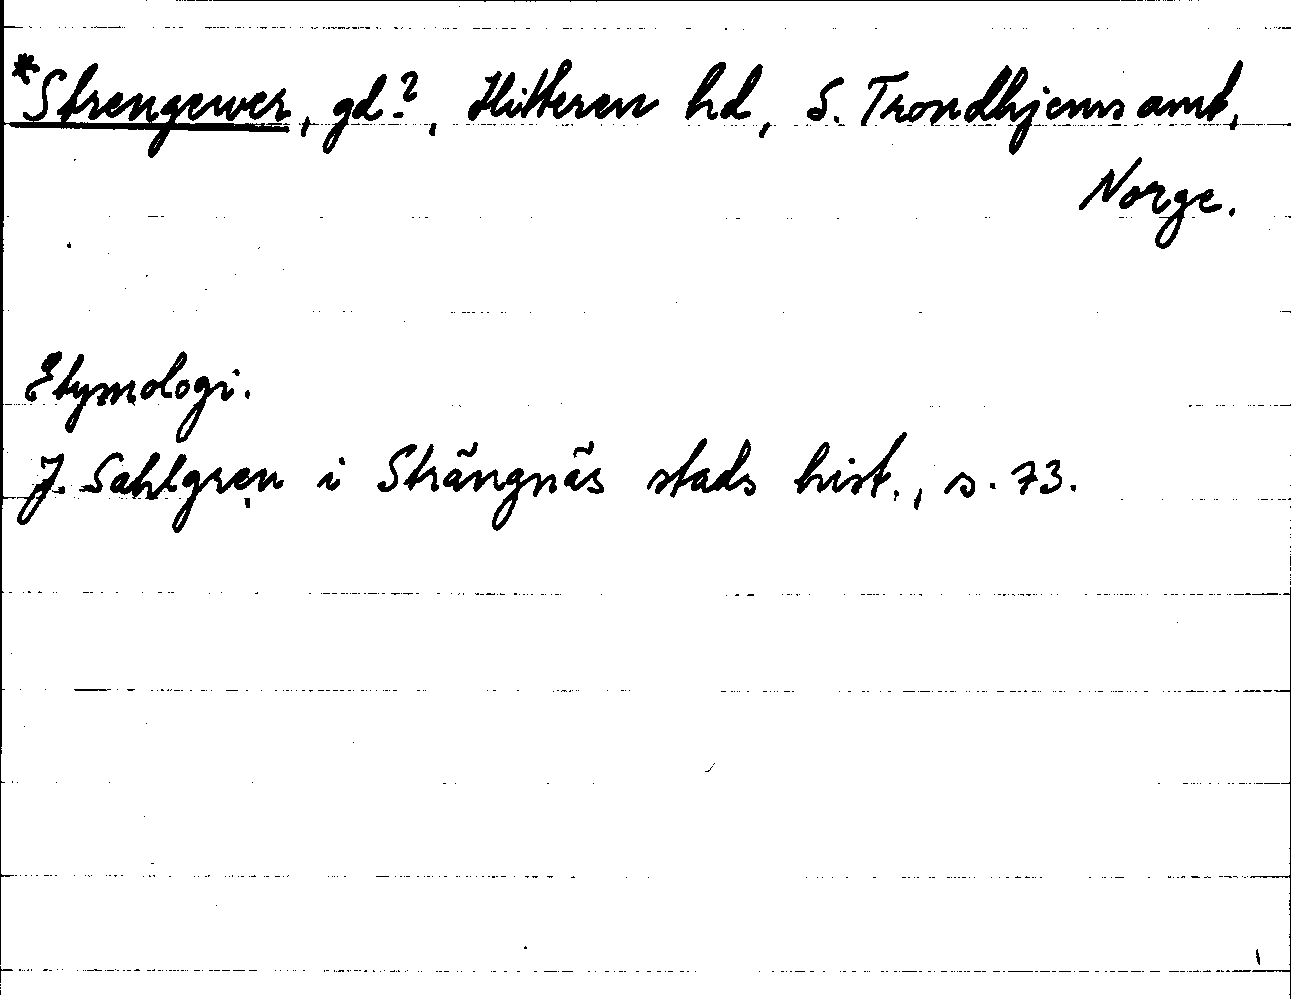 *Strengewer, gd?, Hitteren hd, S. Trondhjems amt,
Norge.
Etymologi.
J. Sahlgren i Strängnäs stads hist., s. 73.